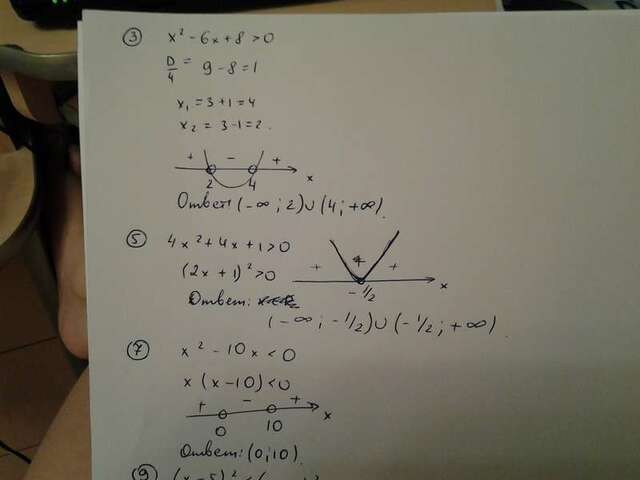 ③ x² - 6x + 8 > 0
D/4 = 9 - 8 = 1
x₁ = 3 + 1 = 4
x₂ = 3 - 1 = 2.
+ - +
2 4 x
Ответ: (-∞; 2)∪(4; +∞).
⑤ 4x² + 4x + 1 > 0
(2x + 1)² > 0
+ + +
-1/2 x
Ответ:
(-∞; -1/2)∪(-1/2; +∞).
⑦ x² - 10x < 0
x(x-10)<0
+ - +
0 10 x
Ответ: (0; 10).
⑨